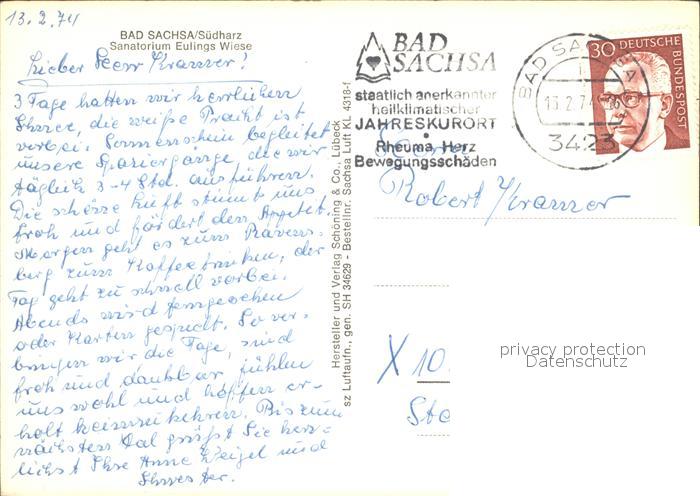 13.2.74
BAD SACHSA/Südharz
Sanatorium Eulings Wiese
Lieber Herr Kranner!
3 Tage hatten wir herrlichen
Schnee, die weiße Pracht ist
vorbei. Sonnenschein begleitet
unsere Spaziergänge, die wir
täglich 3-4 Std. ausführen.
Die schöne Luft stimmt uns
froh und fördert den Appetit.
Morgen geht es zum Ravens-
berg zum Kaffeetrinken, der
Tag geht zu schnell vorbei.
Abends wird ferngesehen
oder Karten gespielt. So ver-
bringen wir die Tage, sind
froh und dankbar, fühlen
uns wohl und hoffen er-
holt heimzukehren. Bis zum
nächsten Mal grüßt Sie herz-
lichst Ihre Anne Weigel und
Schwester.
Hersteller und Verlag Schöning & Co., Lübeck
sz Luftaufn., gen. SH 34629 - Bestellnr. Sachsa Luft KL 4318-f
BAD
SACHSA
staatlich anerkannter
heilklimatischer
JAHRESKURORT
Rheuma Herz
Bewegungsschäden
BAD SACHSA
13.2.74
3423
30 DEUTSCHE
BUNDESPOST
Robert Kranner
X 10
privacy protection
Datenschutz